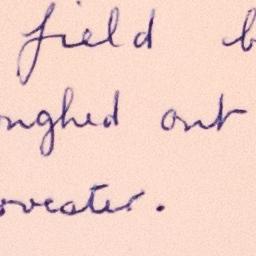 field b
oughed out
oveater.